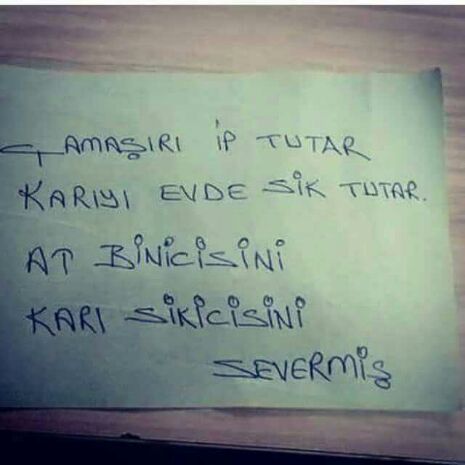 ÇAMAŞIRI İP TUTAR
KARIYI EVDE SİK TUTAR.
AT BİNİCİSİNİ
KARI SİKİCİSİNİ
SEVERMİŞ